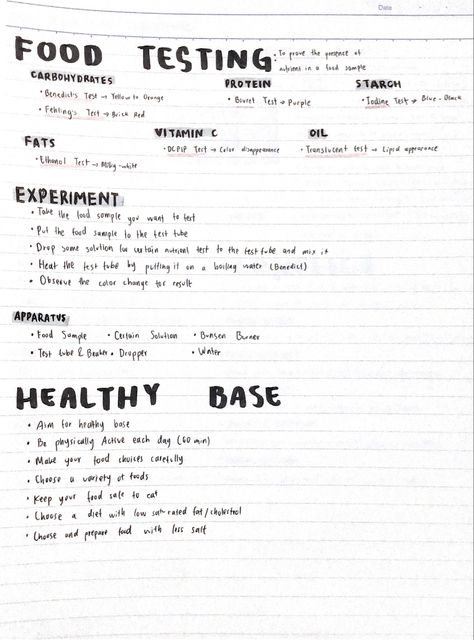 Date
FOOD TESTING: To prove the presence of
nutrient in a food sample
CARBOHYDRATES
• Benedict's Test → Yellow to Orange
• Fehling's Test → Brick Red
PROTEIN
• Biuret Test → Purple
STARCH
• Iodine Test → Blue - Black
FATS
• Ethanol Test → Milky-white
VITAMIN C
• DCPIP Test → Color disappearance
OIL
• Translucent test → Lipid appearance
EXPERIMENT
• Take the food sample you want to test
• Put the food sample to the test tube
• Drop some solution for certain nutrient test to the test tube and mix it
• Heat the test tube by putting it on a boiling water (Benedict)
• Observe the color change for result
APPARATUS
• Food Sample • Certain Solution • Bunsen Burner
• Test tube & Beaker • Dropper • Water
HEALTHY BASE
• Aim for healthy base
• Be physically Active each day (60 min)
• Make your food choices carefully
• Choose a variety of foods
• Keep your food safe to eat
• Choose a diet with low fat/cholestrol
• Choose and prepare food with less salt